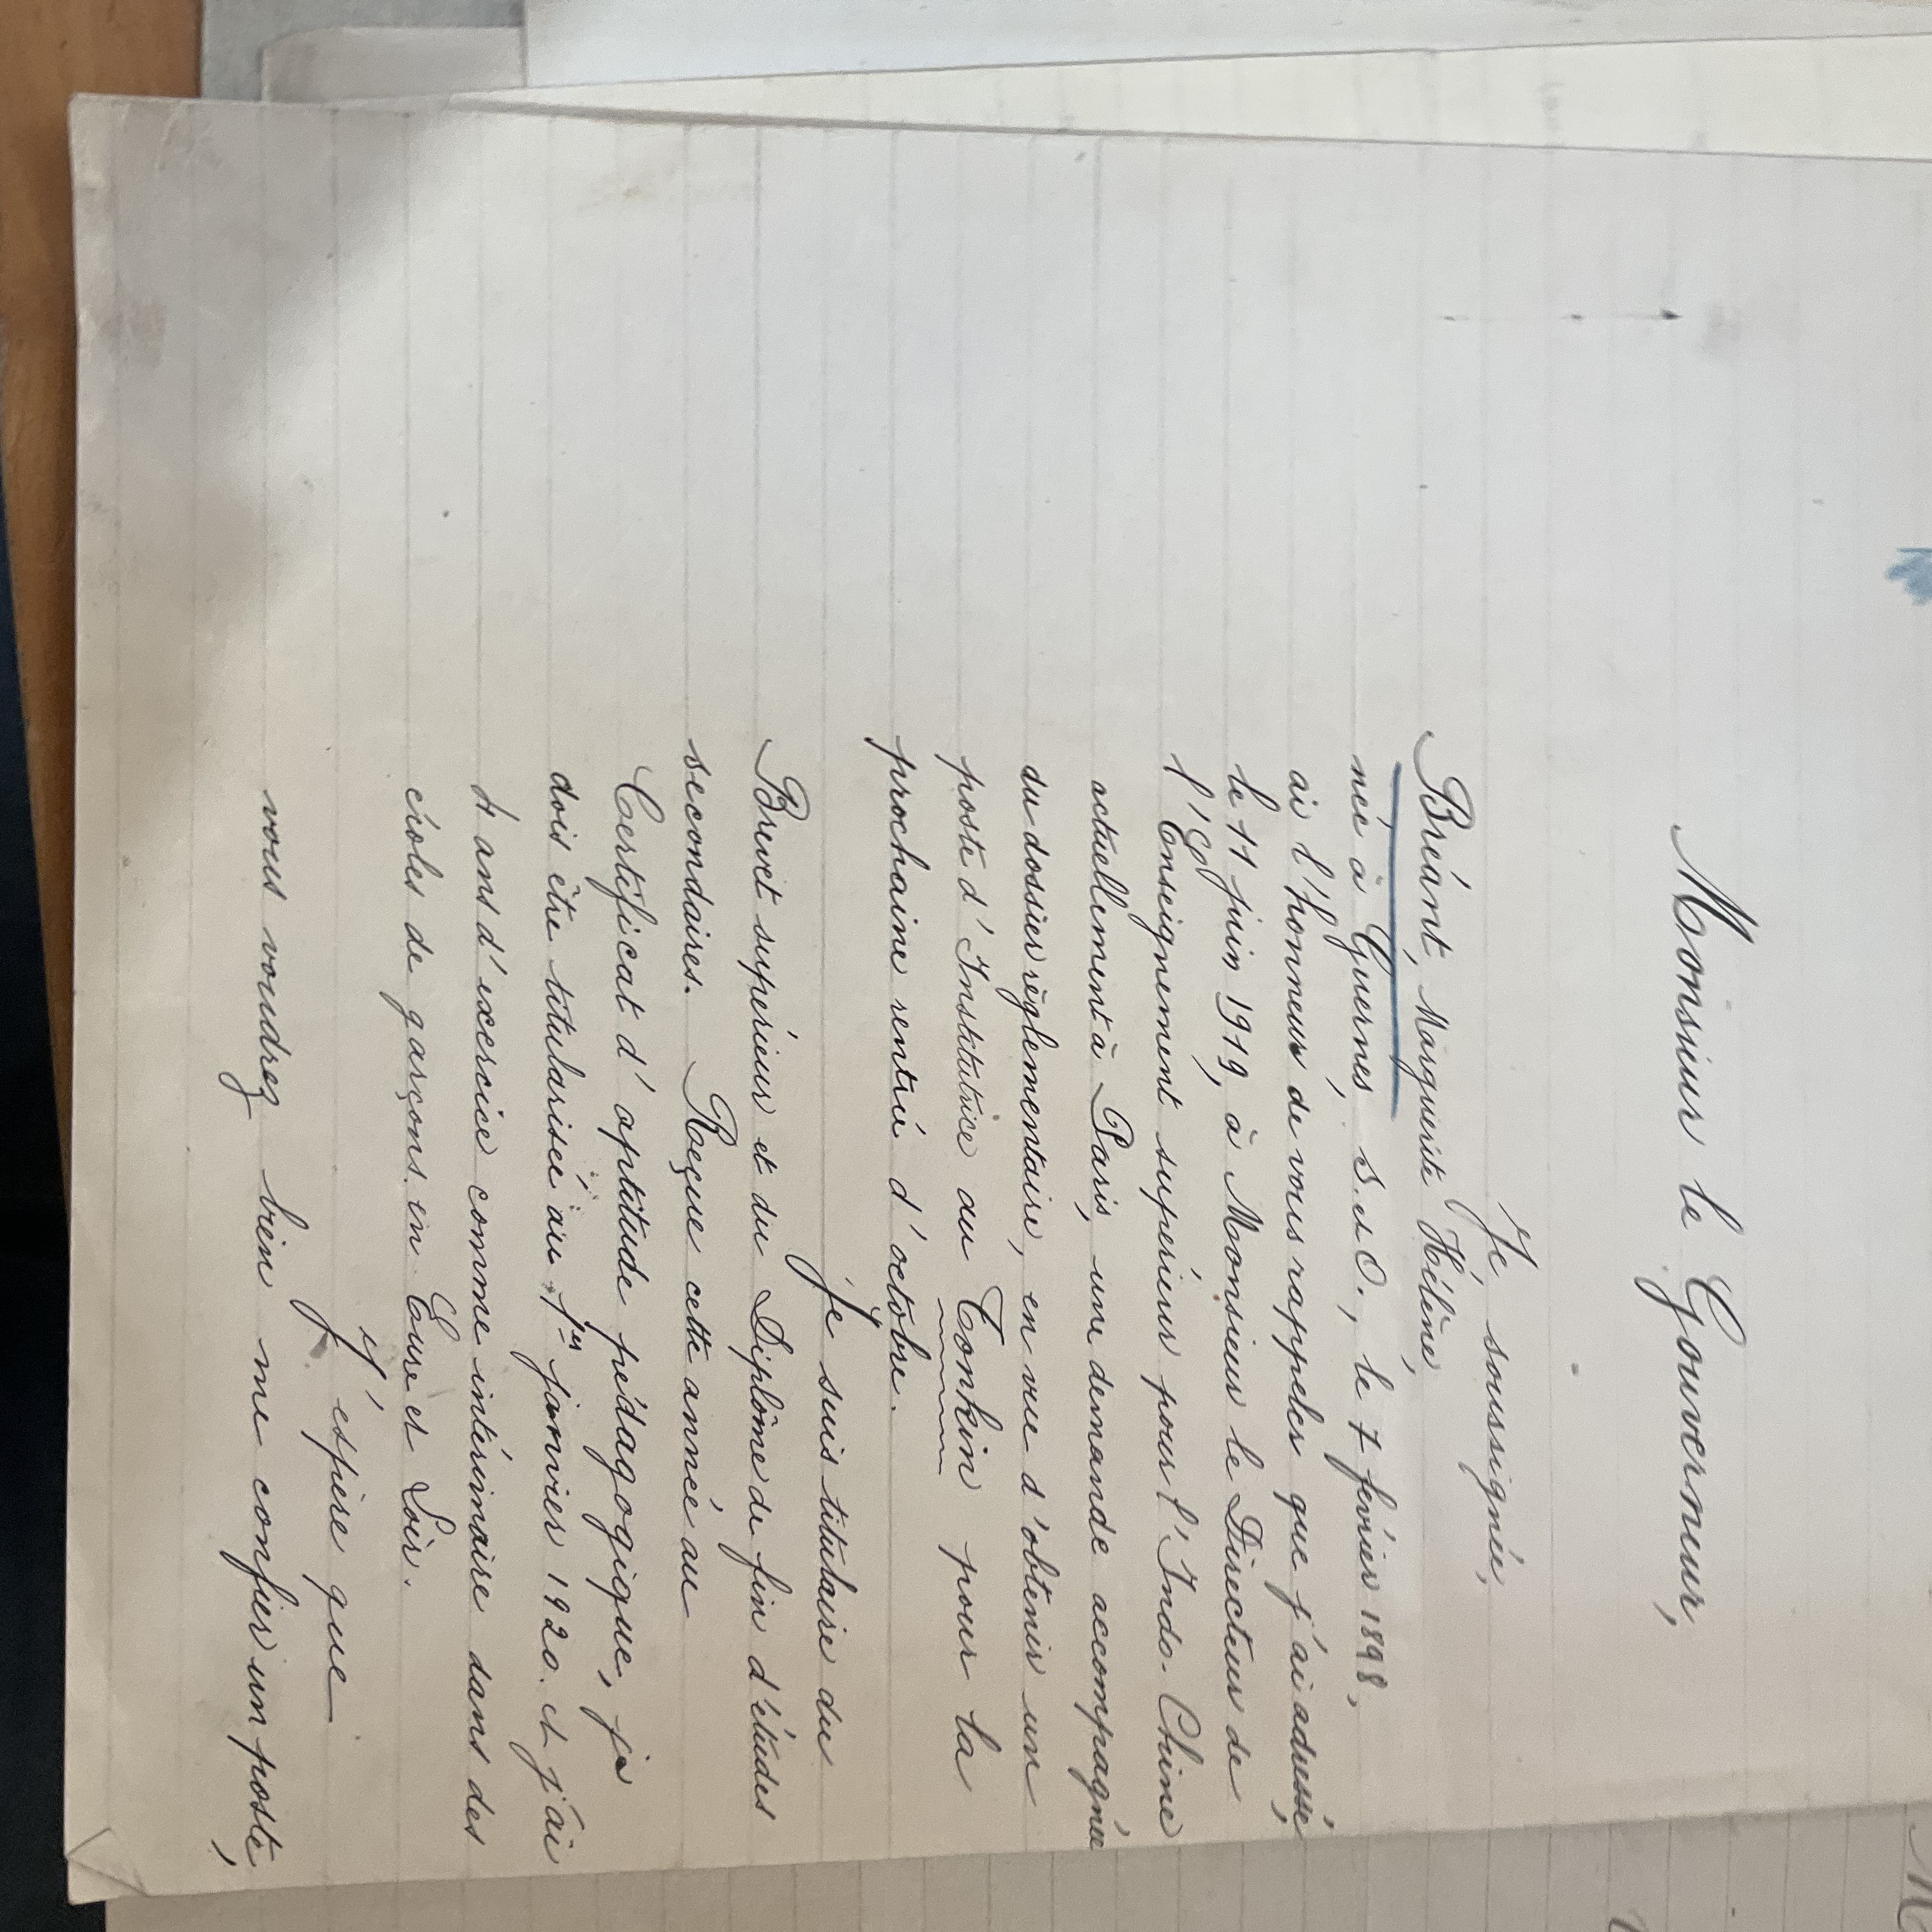 Monsieur le Gouverneur,
Je soussignée,
Bréant, Marguerite Hélène,
née à Guernes, S. et O., le 7 février 1898,
ai l'honneur de vous rappeler que j'ai adressé,
le 11 juin 1919, à Monsieur le Directeur de
l'Enseignement supérieur pour l'Indo-Chine
actuellement à Paris, une demande accompagnée
du dossier règlementaire, en vue d'obtenir un
poste d'Institutrice au Tonkin pour la
prochaine rentrée d'octobre.
Je suis titulaire du
Brevet supérieur et du Diplôme de fin d'études
secondaires. Reçue cette année au
Certificat d'aptitude pédagogique, je
dois être titularisée au 1er janvier 1920. et j'ai
ans d'exercice comme intérimaire dans des
écoles de garçons en Eure et Loir.
J'espère que
vous voudrez bien me confier un poste,